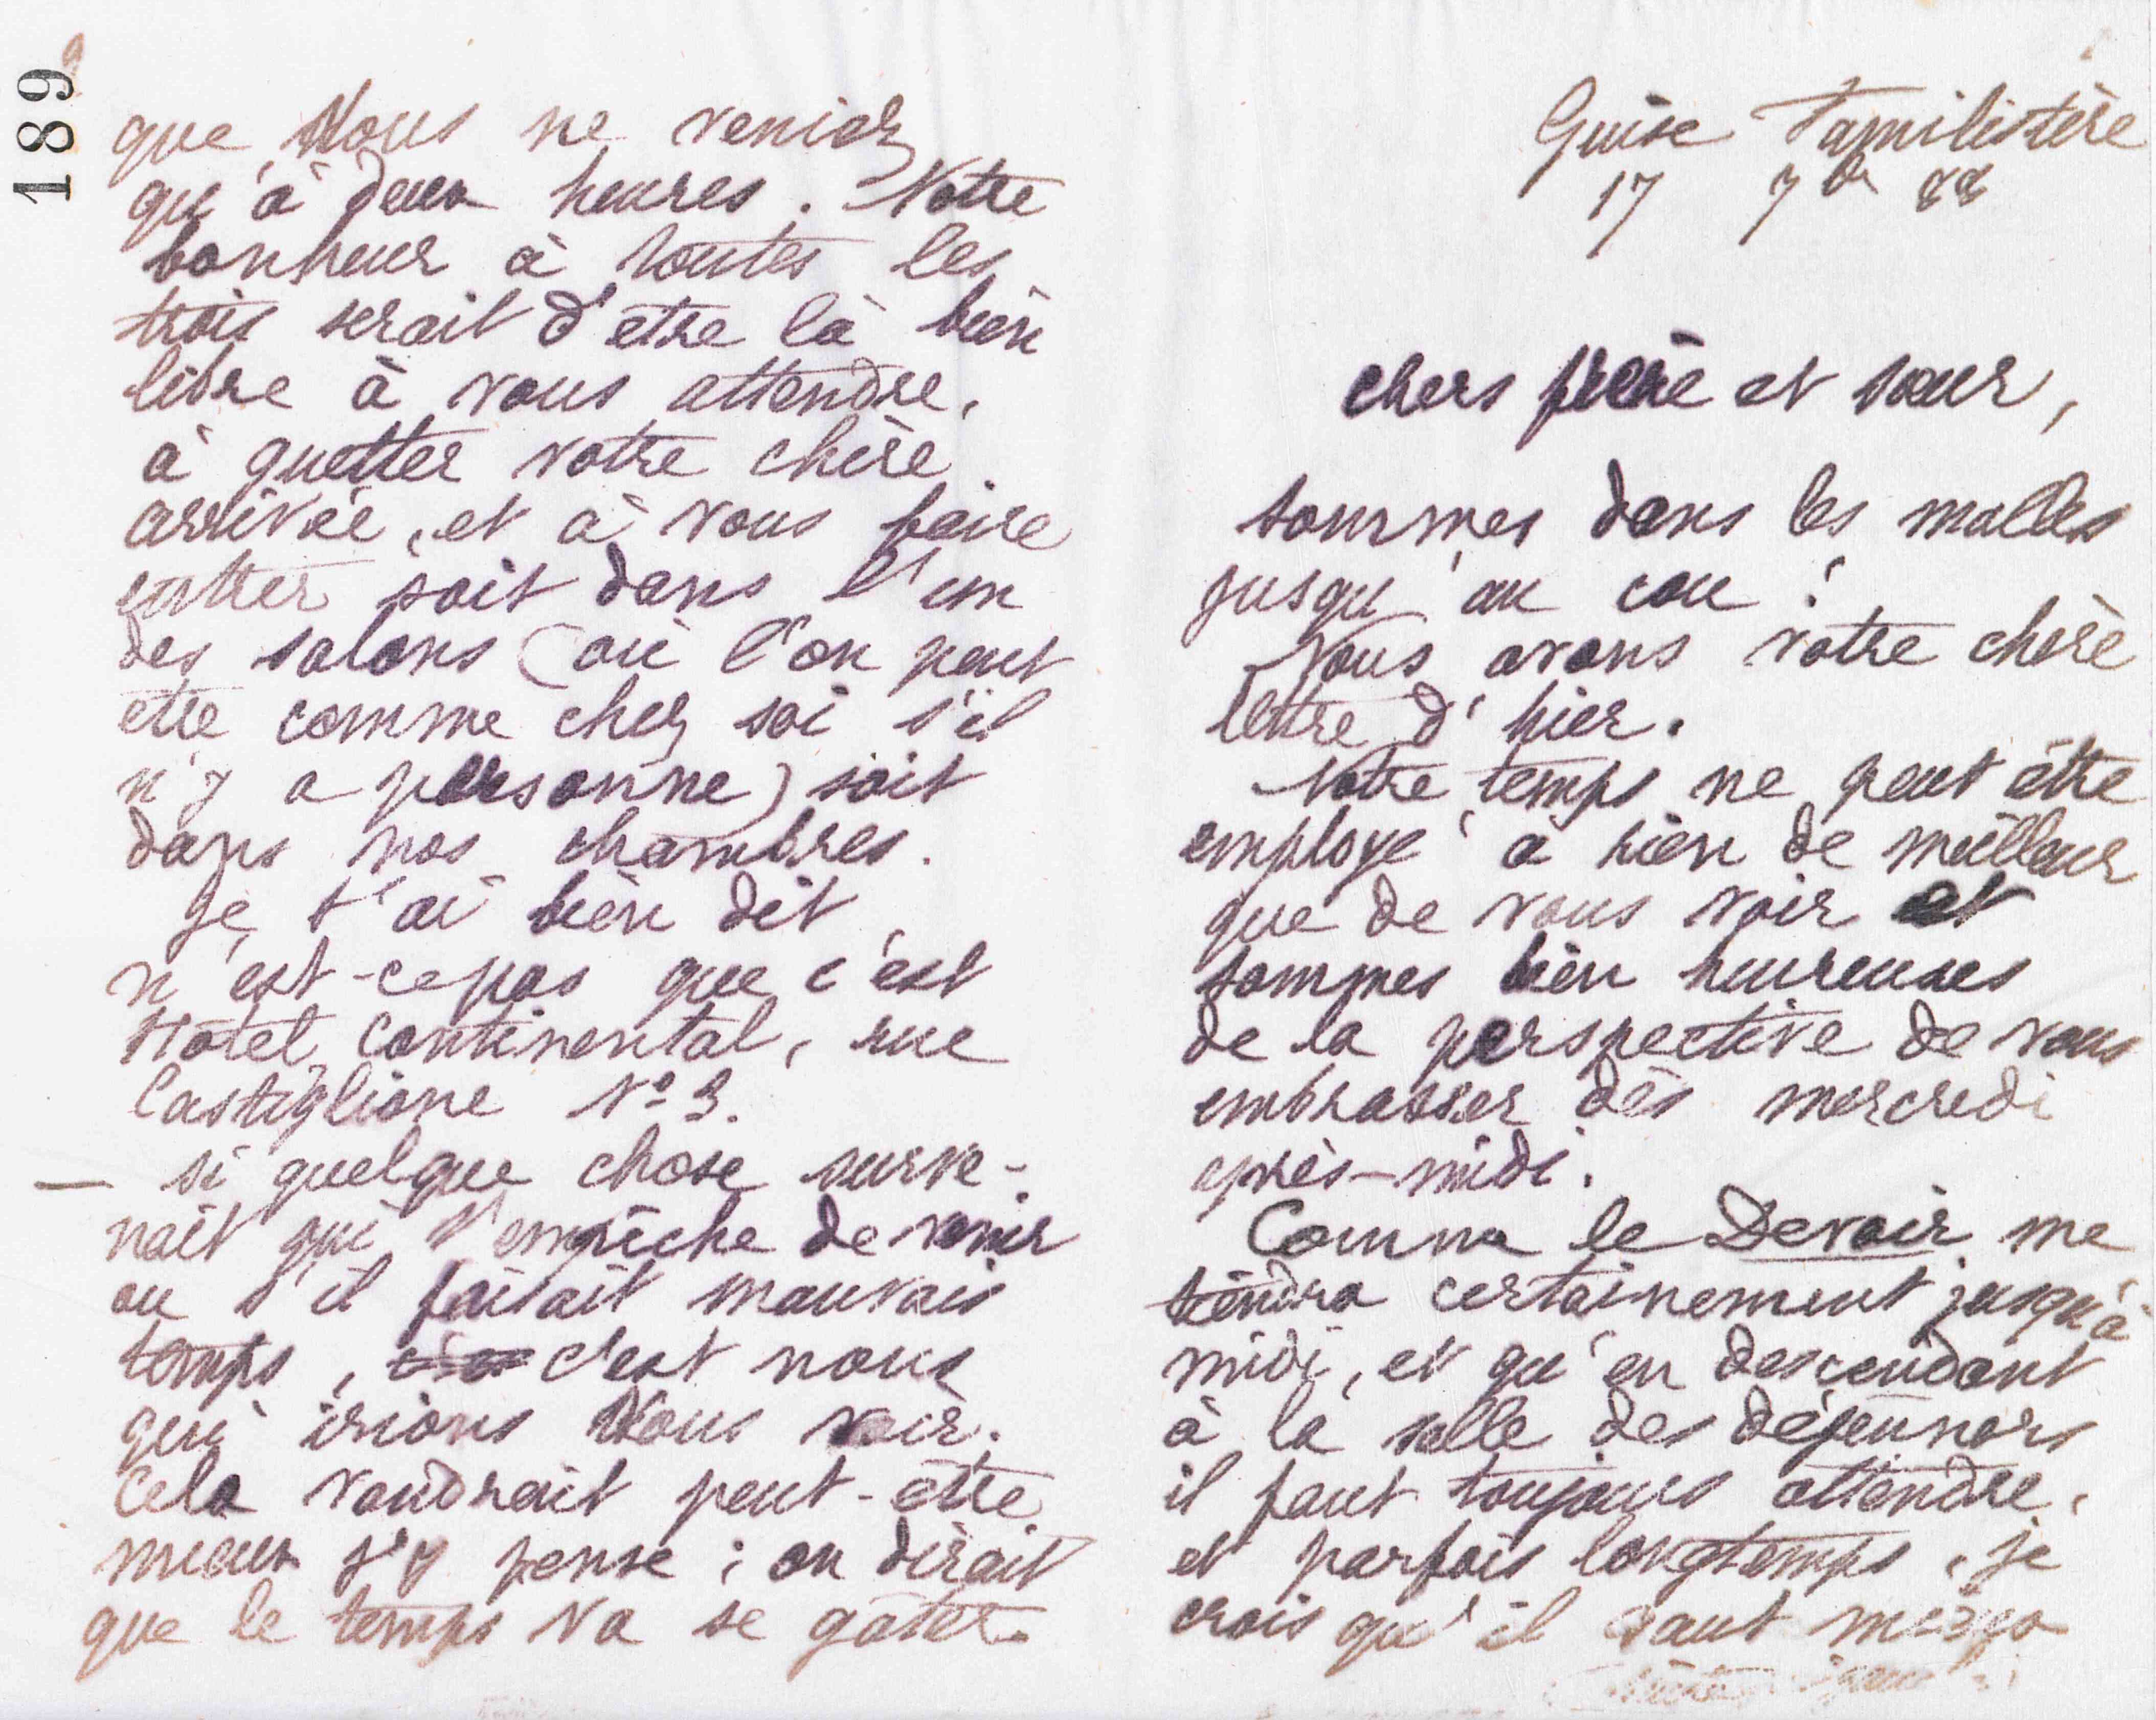 Guise Familistère
17 7bre 88
chers frère et sœur,
sommes dans les malles
jusqu'au cou !
Nous avons votre chère
lettre d'hier.
Notre temps ne peut être
employé à rien de meilleur
que de vous voir et
sommes bien heureuses
de la perspective de vous
embrasser dès mercredi
après-midi.
Comme le Devoir me
tiendra certainement jusqu'à
midi, et qu'en descendant
à la salle des déjeuners
il faut toujours attendre,
et parfois longtemps, je
crois qu'il vaut mieux
189
que Vous ne veniez
qu'à deux heures. Notre
bonheur à toutes les
trois serait d'être là bien
libre à vous attendre,
à guetter votre chère
arrivée, et à vous faire
entrer soit dans l'un
des salons (où l'on peut
être comme chez soi s'il
n'y a personne) soit
dans nos chambres.
Je t'ai bien dit
n'est-ce pas que c'est
Hôtel Continental, rue
Castiglione Nº 3.
— si quelque chose surve-
nait qui t'empêche de venir
ou s'il faisait mauvais
temps, c'est nous
qui irions Vous voir.
Cela vaudrait peut-être
mieux j'y pense ; on dirait
que le temps va se gâter.